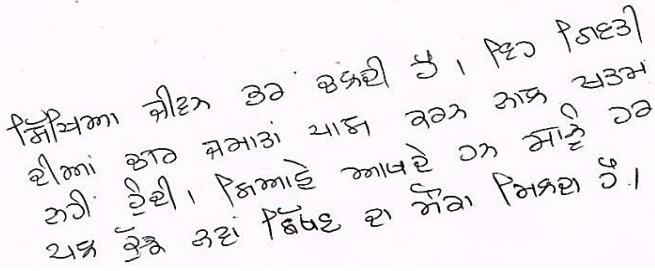 ਸਿੱਖਿਆ ਜੀਵਨ ਭਰ ਚਲਦੀ ਹੈ। ਇਹ ਗਿਣਤੀ
ਦੀਆਂ ਚਾਰ ਜਮਾਤਾਂ ਪਾਸ ਕਰਨ ਨਾਲ ਖਤਮ
ਨਹੀਂ ਹੁੰਦੀ। ਸਿਆਣੇ ਆਖਦੇ ਹਨ ਸਾਨੂੰ ਹਰ
ਪਲ ਕੁੱਝ ਨਵਾਂ ਸਿੱਖਣ ਦਾ ਮੌਕਾ ਮਿਲਦਾ ਹੈ।